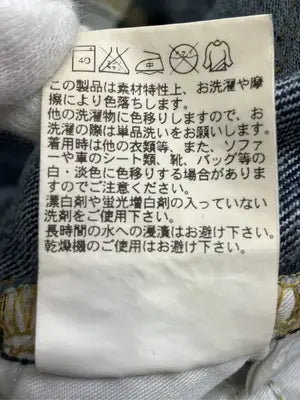 40
エンソサラシ
中
この製品は素材特性上、お洗濯や摩
擦により色落ちします。
他の洗濯物に色移りしますので、お
洗濯の際は単品洗いをお願いします。
着用時は他の衣類等、また、ソファ
ーや車のシート類、靴、バッグ等の
白・淡色に色移りする場合があります
のでご注意ください。
漂白剤や蛍光増白剤の入っていない
洗剤をご使用下さい。
長時間の水への浸漬はお避け下さい。
乾燥機のご使用はお避け下さい。